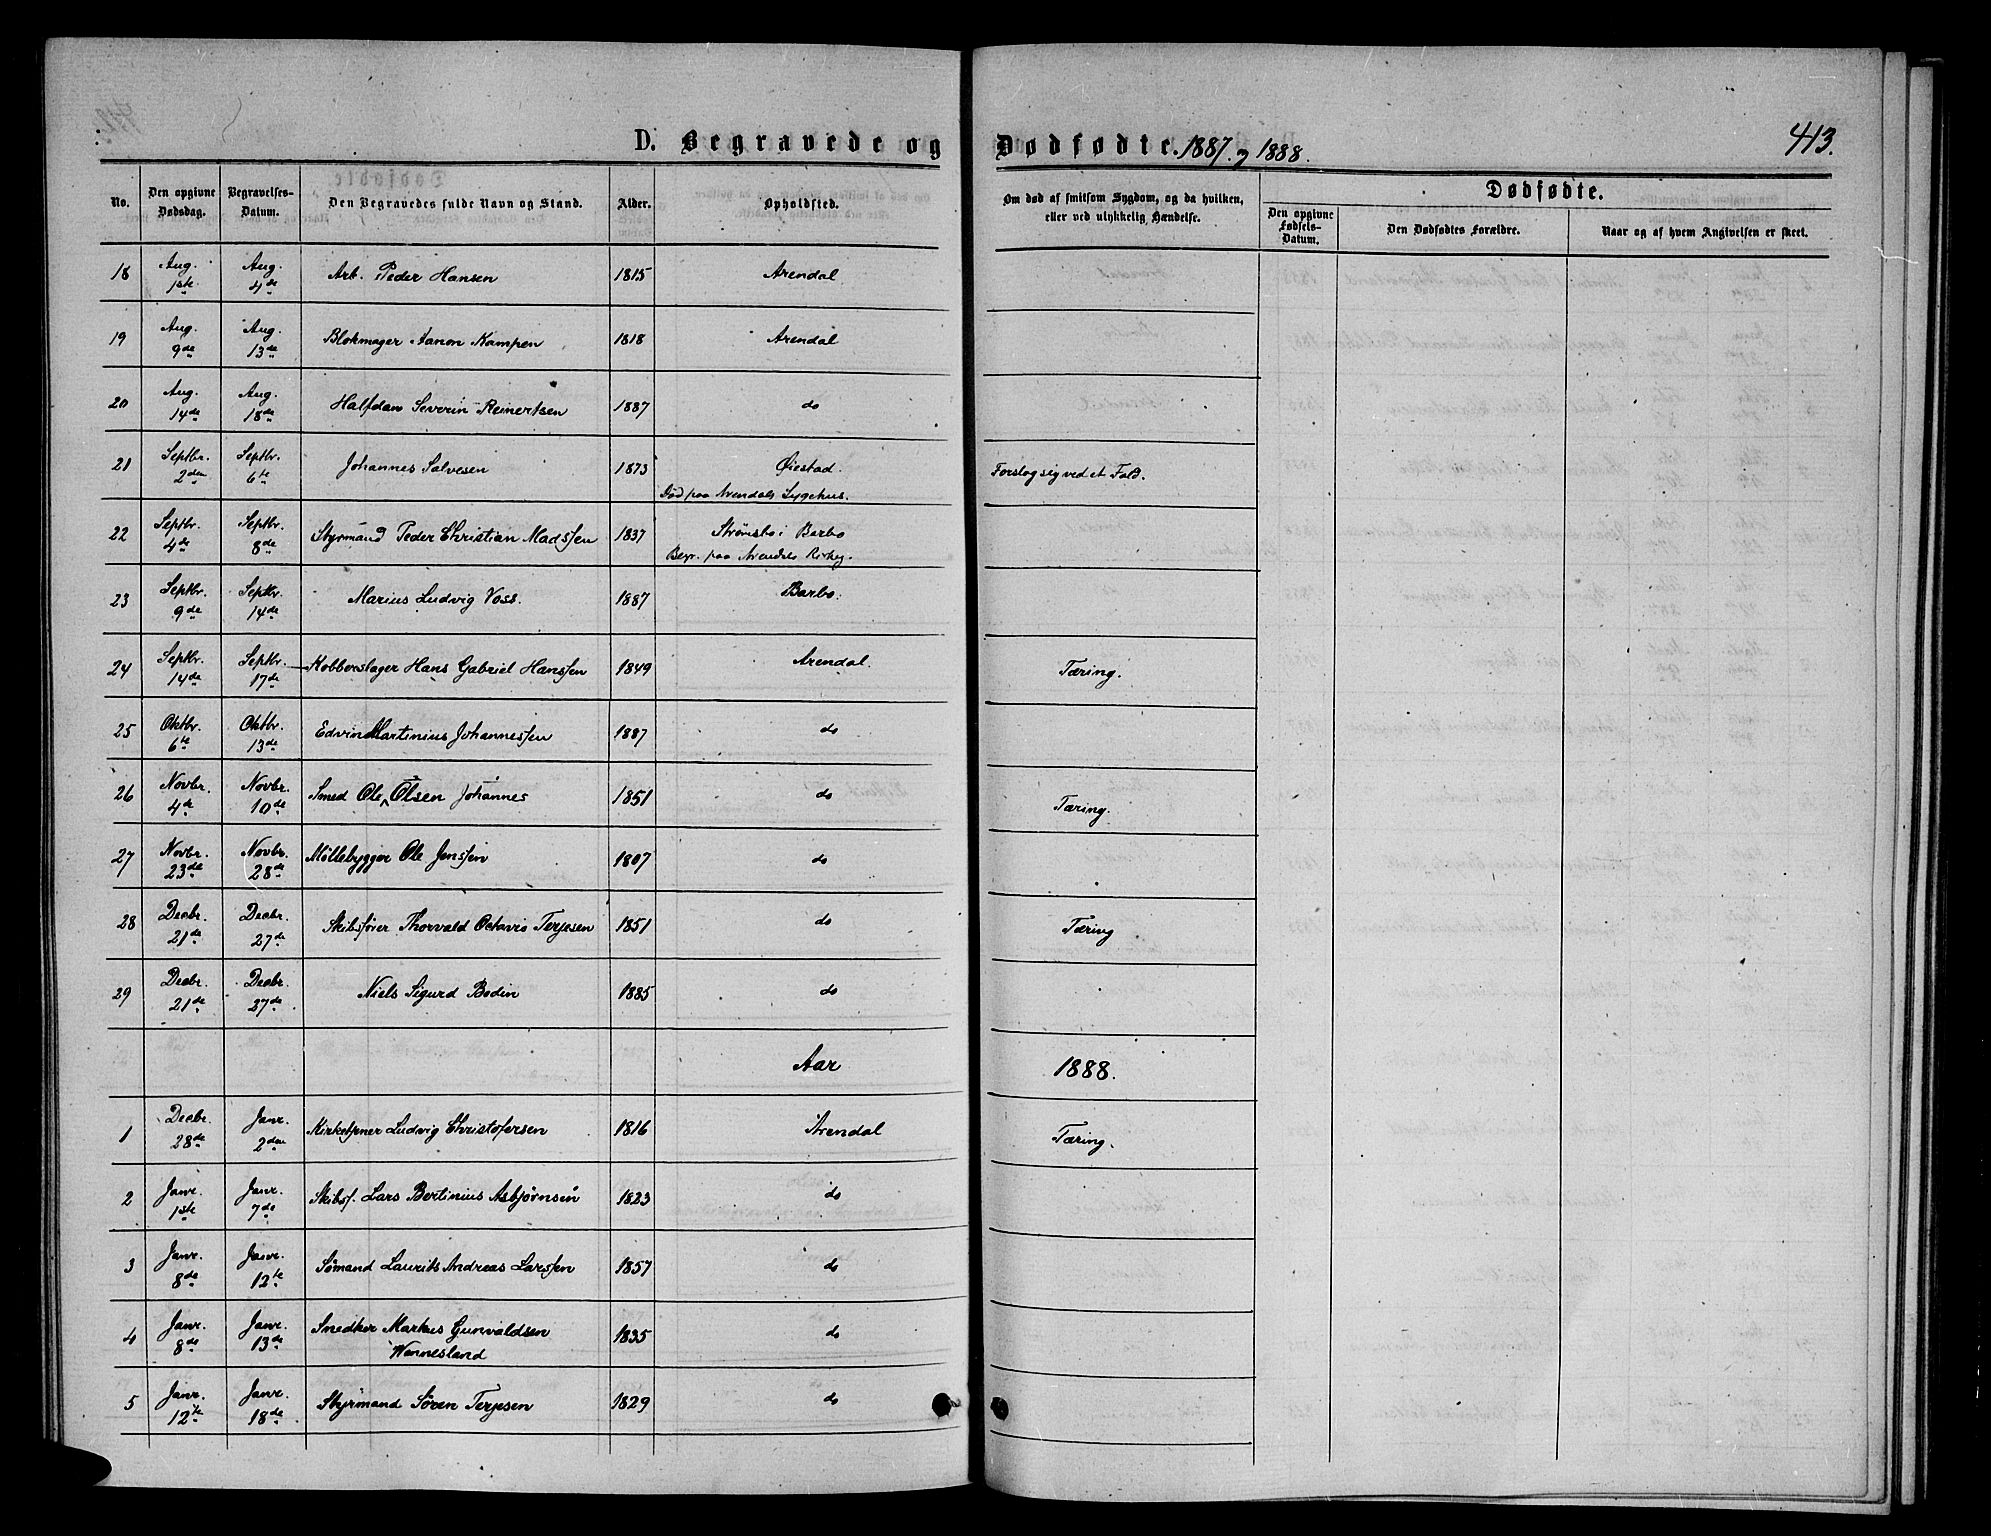 D. Begravede og Dødfødte. 1887. og 1888. 413.
No. Den opgivne Dødsdag. Begravelses-Datum. Den Begravedes fulde Navn og Stand. Alder. Opholdssted. Om død af smitsom Sygdom, og da hvilken, eller ved ulykkelig Hændelse. Dødfødte.
Den opgivne Fødsels-Datum. Den Dødfødtes Forældre. Naar og af hvem Angivelsen er skeet.
18 Aug. 1ste Aug. 4de Arb. Peder Hansen 1815 Arendal
19 Aug. 9de Aug. 13de Blokmager Aanon Kampen 1818 Arendal
20 Aug. 14de Aug. 18de Halfdan Severin Reinertsen 1887 do
21 Septbr. 2den Septbr. 6te Johannes Salvesen 1873 Øiestad. Forslog sig ved et Fald.
Død paa Arendals Sygehus.
22 Septbr. 4de Septbr. 8de Styrmand Peder Christian Madssen 1837 Strømsbo i Barbo
Begr. paa Arendals Kirkeg.
23 Septbr. 9de Septbr. 14de Marius Ludvig Voss. 1887 Barbo.
24 Septbr. 14de Septbr. 17de Kobberslager Hans Gabriel Hanssen 1849 Arendal. Tæring.
25 Oktbr. 6te Oktbr. 13de Edvin Martinius Johannessen 1887 do
26 Novbr. 4de Novbr. 10de Smed Ole Olsen Johannes 1851 do Tæring.
27 Novbr. 23de Novbr. 28de Møllebygger Ole Jenssen 1807 do
28 Decbr. 21de Decbr. 27de Skibsfører Thorvald Octavio Terjesen 1851 do Tæring
29 Decbr. 21de Decbr. 27de Niels Sigurd Bodin 1885 do
Aar 1888.
1 Decbr. 28de Janr. 2den Kirketjener Ludvig Christofersen 1816 Arendal Tæring.
2 Janr. 1ste Janr. 7de Skibsf. Lars Bertinius Asbjørnsen 1823 do
3 Janr. 8de Janr. 12te Sømand Laurits Andreas Larssen 1857 do
4 Janr. 8de Janr. 13de Snedker Markus Gunvaldsen 1835 do
Wennesland
5 Janr. 12te Janr. 18de Styrmand Søren Terjesen 1829 do